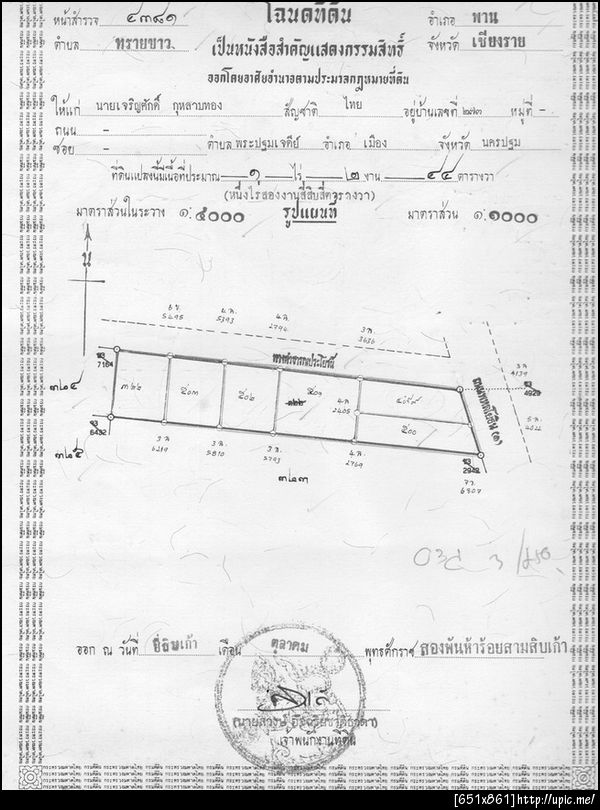 หน้าสำรวจ ๔๓๘๑ โฉนดที่ดิน อำเภอ พาน
ตำบล ทรายขาว. เป็นหนังสือสำคัญแสดงกรรมสิทธิ์ จังหวัด เชียงราย
ออกโดยอาศัยอำนาจตามประมวลกฎหมายที่ดิน
ให้แก่ นายเจริญศักดิ์ กุหลาบทอง สัญชาติ ไทย อยู่บ้านเลขที่ ๒๗๓ หมู่ที่ -
ถนน -
ซอย - ตำบล พระปฐมเจดีย์ อำเภอ เมือง จังหวัด นครปฐม
ที่ดินแปลงนี้มีเนื้อที่ประมาณ ๑ ไร่ ๒ งาน ๔๔ ตารางวา
(หนึ่งไร่สองงานสี่สิบสี่ตารางวา)
มาตราส่วนในระวาง ๑:๕๐๐๐ รูปแผนที่ มาตราส่วน ๑:๑๐๐๐
น
5495 5393 2794 3636
ทางสาธารณประโยชน์
7164
4139
4929
๓๒๔
๓๒๒ ๕๐๓ ๕๐๒ ๕๐๑
2405
๕๐๐
4022
6432
6219 5810 5793 2769
2942
6707
๓๒๓
ออก ณ วันที่ ยี่สิบเก้า เดือน ตุลาคม พุทธศักราช สองพันห้าร้อยสามสิบเก้า
เจ้าพนักงานที่ดิน
[651x861]http://upic.me/